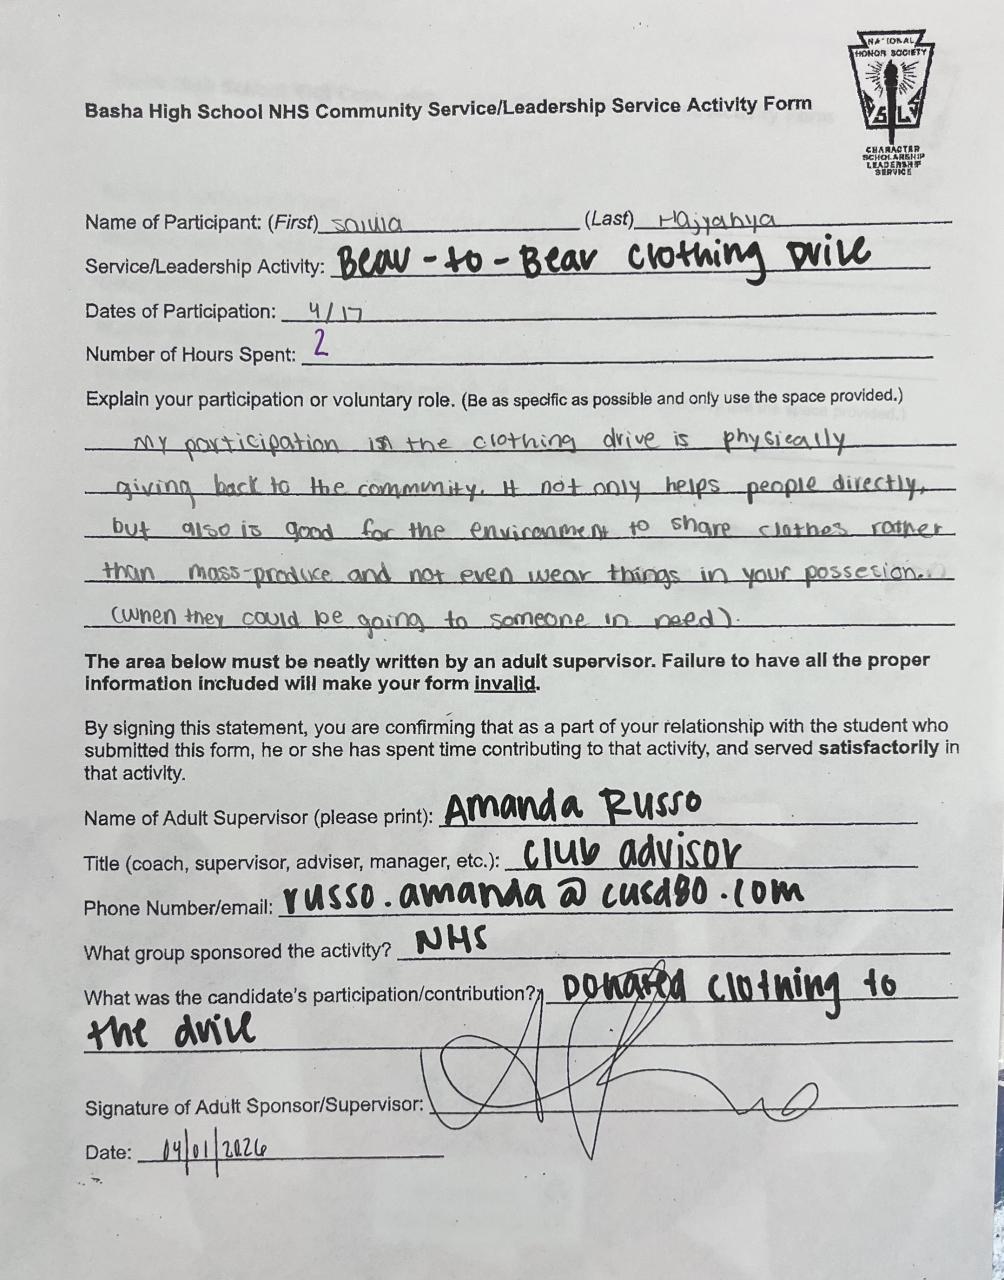 NATIONAL
HONOR SOCIETY
C S L S
CHARACTER
SCHOLARSHIP
LEADERSHIP
SERVICE
Basha High School NHS Community Service/Leadership Service Activity Form
Name of Participant: (First) salwa (Last) Hajyahya
Service/Leadership Activity: Bear-to-Bear clothing Drive
Dates of Participation: 4/17
Number of Hours Spent: 2
Explain your participation or voluntary role. (Be as specific as possible and only use the space provided.)
my participation in the clothing drive is physically
giving back to the community. It not only helps people directly,
but also is good for the environment to share clothes rather
than mass-produce and not even wear things in your possesion.
(when they could be going to someone in need).
The area below must be neatly written by an adult supervisor. Failure to have all the proper
information included will make your form invalid.
By signing this statement, you are confirming that as a part of your relationship with the student who
submitted this form, he or she has spent time contributing to that activity, and served satisfactorily in
that activity.
Name of Adult Supervisor (please print): Amanda Russo
Title (coach, supervisor, adviser, manager, etc.): club advisor
Phone Number/email: russo.amanda@cusd80.com
What group sponsored the activity? NHS
What was the candidate's participation/contribution? Donated clothing to
the drive
Signature of Adult Sponsor/Supervisor:
Date: 04/01/2026